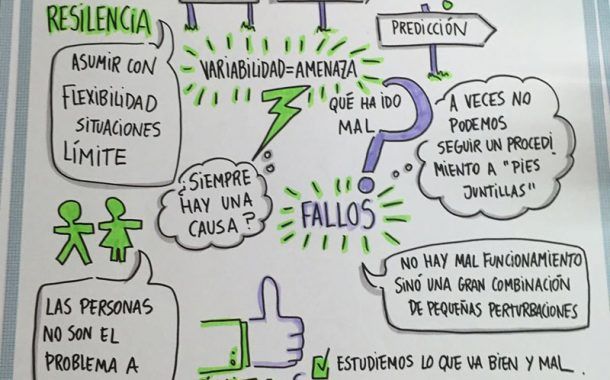 RESILENCIA
ASUMIR CON
FLEXIBILIDAD
SITUACIONES
LÍMITE
VARIABILIDAD=AMENAZA
PREDICCIÓN
QUÉ HA IDO
MAL
A VECES NO
PODEMOS
SEGUIR UN PROCEDI
MIENTO A "PIES
JUNTILLAS"
¿SIEMPRE
HAY UNA
CAUSA?
FALLOS
NO HAY MAL FUNCIONAMIENTO
SINÓ UNA GRAN COMBINACIÓN
DE PEQUEÑAS PERTURBACIONES
LAS PERSONAS
NO SON EL
PROBLEMA A
ESTUDIEMOS LO QUE VA BIEN Y MAL.